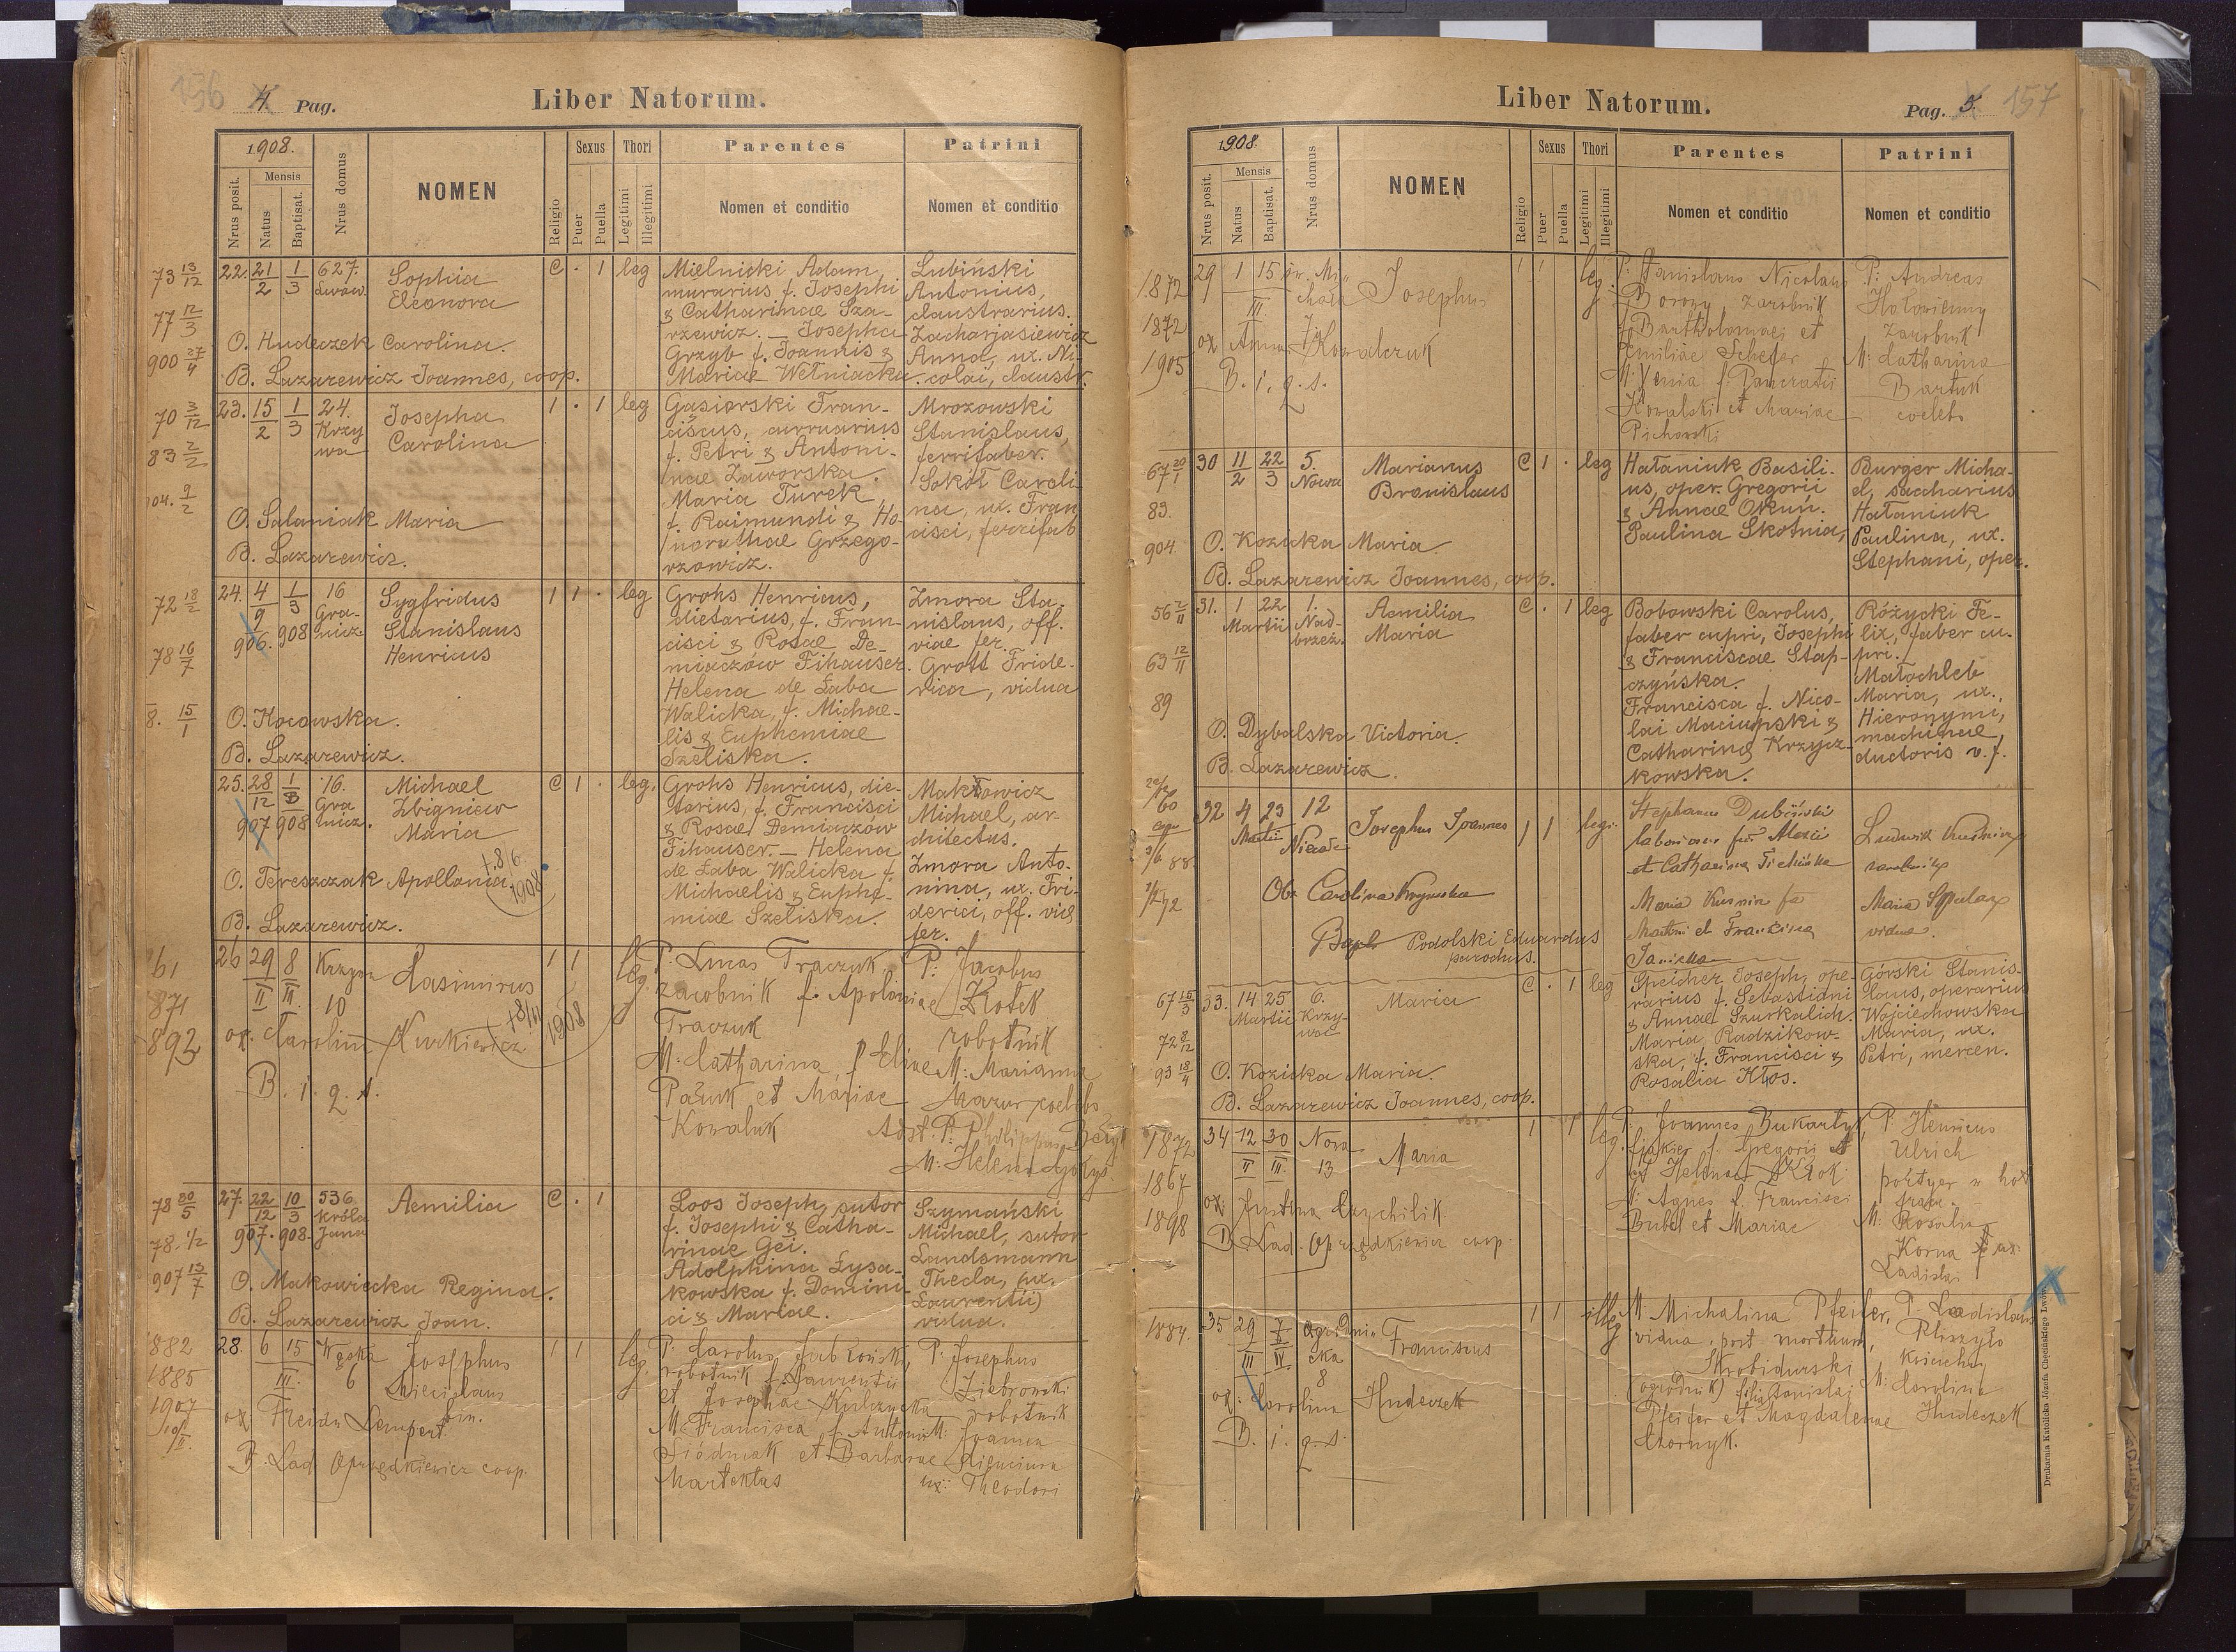 156 4. Pag.
Liber Natorum.
1908.
Nrus posit.
Mensis
Natus
Baptisat.
Nrus domus
NOMEN
Religio
Sexus
Puer
Puella
Thori
Legitimi
Illegitimi
Parentes
Nomen et conditio
Patrini
Nomen et conditio
73 13/12
77 12/3
900 27/4
22. 21/2 1/3 627. Lwów.
Sophia
Eleonora
C · 1 leg
Mielnicki Adam,
murarius f. Josephi
& Catharinae Sza-
rzewicz. — Josepha
Grzyb f. Joannis &
Mariae Wełniacka.
Lubiński
Antonius,
claustrarius.
Zacharjasiewicz
Anna, ux. Ni-
colai, claustr.
O. Hudeczek Carolina.
B. Lazarewicz Joannes, coop.
70 3/12
83 2/2
904. 9/2
23. 15/2 1/3 24. Krzy
wa
Josepha
Carolina
1 · 1 leg
Gasiorski Fran-
ciscus, curruarius
f. Petri & Antoni-
nae Zaworska.
Maria Turek
f. Raimundi & Ho-
norathae Grzego-
rzowicz.
Mrozowski
Stanislaus,
ferrifaber.
Sokół Caroli
na, ux. Fran
cisci, ferrifab
O. Sałaniak Maria
B. Lazarewicz.
72 18/2
78 16/7
8. 15/1
24. 4/9 906. 1/3 908 16
Gra-
nicz.
Sygfridus
Stanislaus
Henricus
1 1 · leg
Grohs Henricus,
dietarius, f. Fran-
cisci & Rosae De-
miaczów Fihauser.
Helena de Łaba
Walicka, f. Michae-
lis & Euphemiae
Szeliska.
Zmora Sta-
nislaus, off.
viae fer.
Grott Fride-
rica, vidua
O. Kocowska.
B. Lazarewicz.
25. 28/12 907 1/3 908 16.
Gra
nicz.
Michael
Zbigniew
Maria
C 1 · leg.
Grohs Henricus, die-
tarius, f. Francisci
& Rosae Demiaczów
Fihauser. — Helena
de Łaba Walicka f.
Michaelis & Euphe-
miae Szeliska.
Makłowicz
Michael, ar-
chitectus.
Zmora Anto-
nina, ux. Fri-
derici, off. viae
fer.
O. Tereszczak Apollonia.
+ 8/6
1908
B. Lazarewicz.
61
871
892
26 29/II 8/III Krzywa
10
Casimirus
1 1 leg.
P. Lucas Traczuk
zarobnik f. Apoloniae
Traczuk
M: Catharina, f. Eliae
Paźuk et Mariae
Kowaluk
P: Jacobus
Złotek
robotnik
M: Marianna
Mazur coelebs
Adst. P: Philippus
M: Helena
ox. Carolina Kurkiewicz
+ 8/11
1908
B. i. q. s.
78 30/5
78. 1/2
907 13/7
27. 22/12 907. 10/3 908. 536
Króla
Jana
Aemilia
C · 1
Loos Joseph, sutor
f. Josephi & Catha-
rinae Gei.
Adolphina Łysa-
kowska f. Domini-
ci & Mariae.
Szymański
Michael, sutor
Landsmann
Thecla, ux.
Laurentii)
vidua.
O. Makowiecka Regina.
B. Lazarewicz Joan.
1882
1885
1907
10/II
28. 6 15 III.
6
Josephus
bin.
1 1 leg.
P: Carolus Jabłoński,
robotnik f. Laurentii
et Josephae Kulczycka
M Francisca f. Antonii
et Barbarae
P: Josephus
Ziebrowski
robotnik
M: Joanna
ux: Theodori
ox. Freida Lempert.
B. Lad. Oprzędkiewicz coop.
Liber Natorum.
Pag. 5. 157
1908.
Nrus posit.
Mensis
Natus
Baptisat.
Nrus domus
NOMEN
Religio
Sexus
Puer
Puella
Thori
Legitimi
Illegitimi
Parentes
Nomen et conditio
Patrini
Nomen et conditio
1872
1872
1905
29 1 15 III. św. Mi-
chała
7
Josephus
1 1 leg.
P: Stanislaus Nicolaus
zarobnik
f. Bartholomaei et
Emiliae Schefer
M: Xenia f. Pancratii
Kowalski et Mariae
Pichorski
P: Andreas
zarobnik
M: Catharina
Bartuk
coelebs
ox Anna Kowalczuk
B. i. q. s.
67 20/1
83.
904.
30 11/2 22/3 5.
Nowa
Marianus
Bronislaus
C 1 · leg
Hataniuk Basili-
us, oper. Gregorii
& Annae Okuń.
Paulina Skotnia,
Burger Micha-
el, saccharius
Hataniuk
Paulina, ux.
Stephani, oper.
O. Kozicka Maria.
B. Lazarewicz Joannes, coop.
56 2/11
63 12/11
89
31. 1 22 Martii 1.
Nad-
brzeż.
Aemilia
Maria
C · 1 leg
Bobowski Carolus,
faber cupri, Josephi
& Franciscae Stap-
czyńska.
Francisca f. Nico-
lai Maciupski &
Catharina Krzycz-
kowska.
Różycki Fe-
lix, faber cu-
pri.
Małochleb
Maria, ux.
Hieronymi,
machinae
ductoris v. f.
O. Dybalska Victoria.
B. Lazarewicz.
60
88
72
32 4 23 Martii 12
Josephus Joannes
1 1 legi.
Stephanus Dubiński
et Catharina
Maria Kusnir
Martini et Francisca
Ludwik
Maria
vidua.
Ob. Carolina
Bapt. Podolski Eduardus
parochus.
67 15/3
72 8/12
93 18/4
33. 14 25 Martii 6.
Krzy-
wa
Maria
C · 1 leg
Speicher Joseph, ope-
rarius f. Sebastiani
& Annae Szurkalich.
Maria Radzikow-
ska, f. Francisci &
Rosalia Kłos.
Górski Stanis-
laus, operarius
Wojciechowska
Maria, ux.
Petri, mercen.
O. Kozicka Maria.
B. Lazarewicz Joannes, coop.
1872
1867
1898
34 12/II 30/III Nowa
13
Maria
1 1 leg.
P: Joannes
fiakier f. Gregorii
et Helenae Kłok
M: Agnes f. Francisci
Bubel et Mariae
P: Henricus
Ulrich
portyer w
M: Rosalia
Korna ux:
Ladislai
ox. Justina Czychilik
B Lad. Oprzędkiewicz coop.
1884.
35 29/III 7/IV Ogrodni-
cka
8
Franciscus
1 1 illeg
M: Michalina Pfeifer,
vidua post mortuum,
Skrobidurski
(ogrodnik) filia Stanislai
Pfeifer et Magdalenae
Czornyk.
P Ladislaus
M: Carolina
Hudeczek
ox: Carolina Hudeczek
B. i. q. s.
Drukarnia Katolicka Józefa Chęcińskiego Lwów